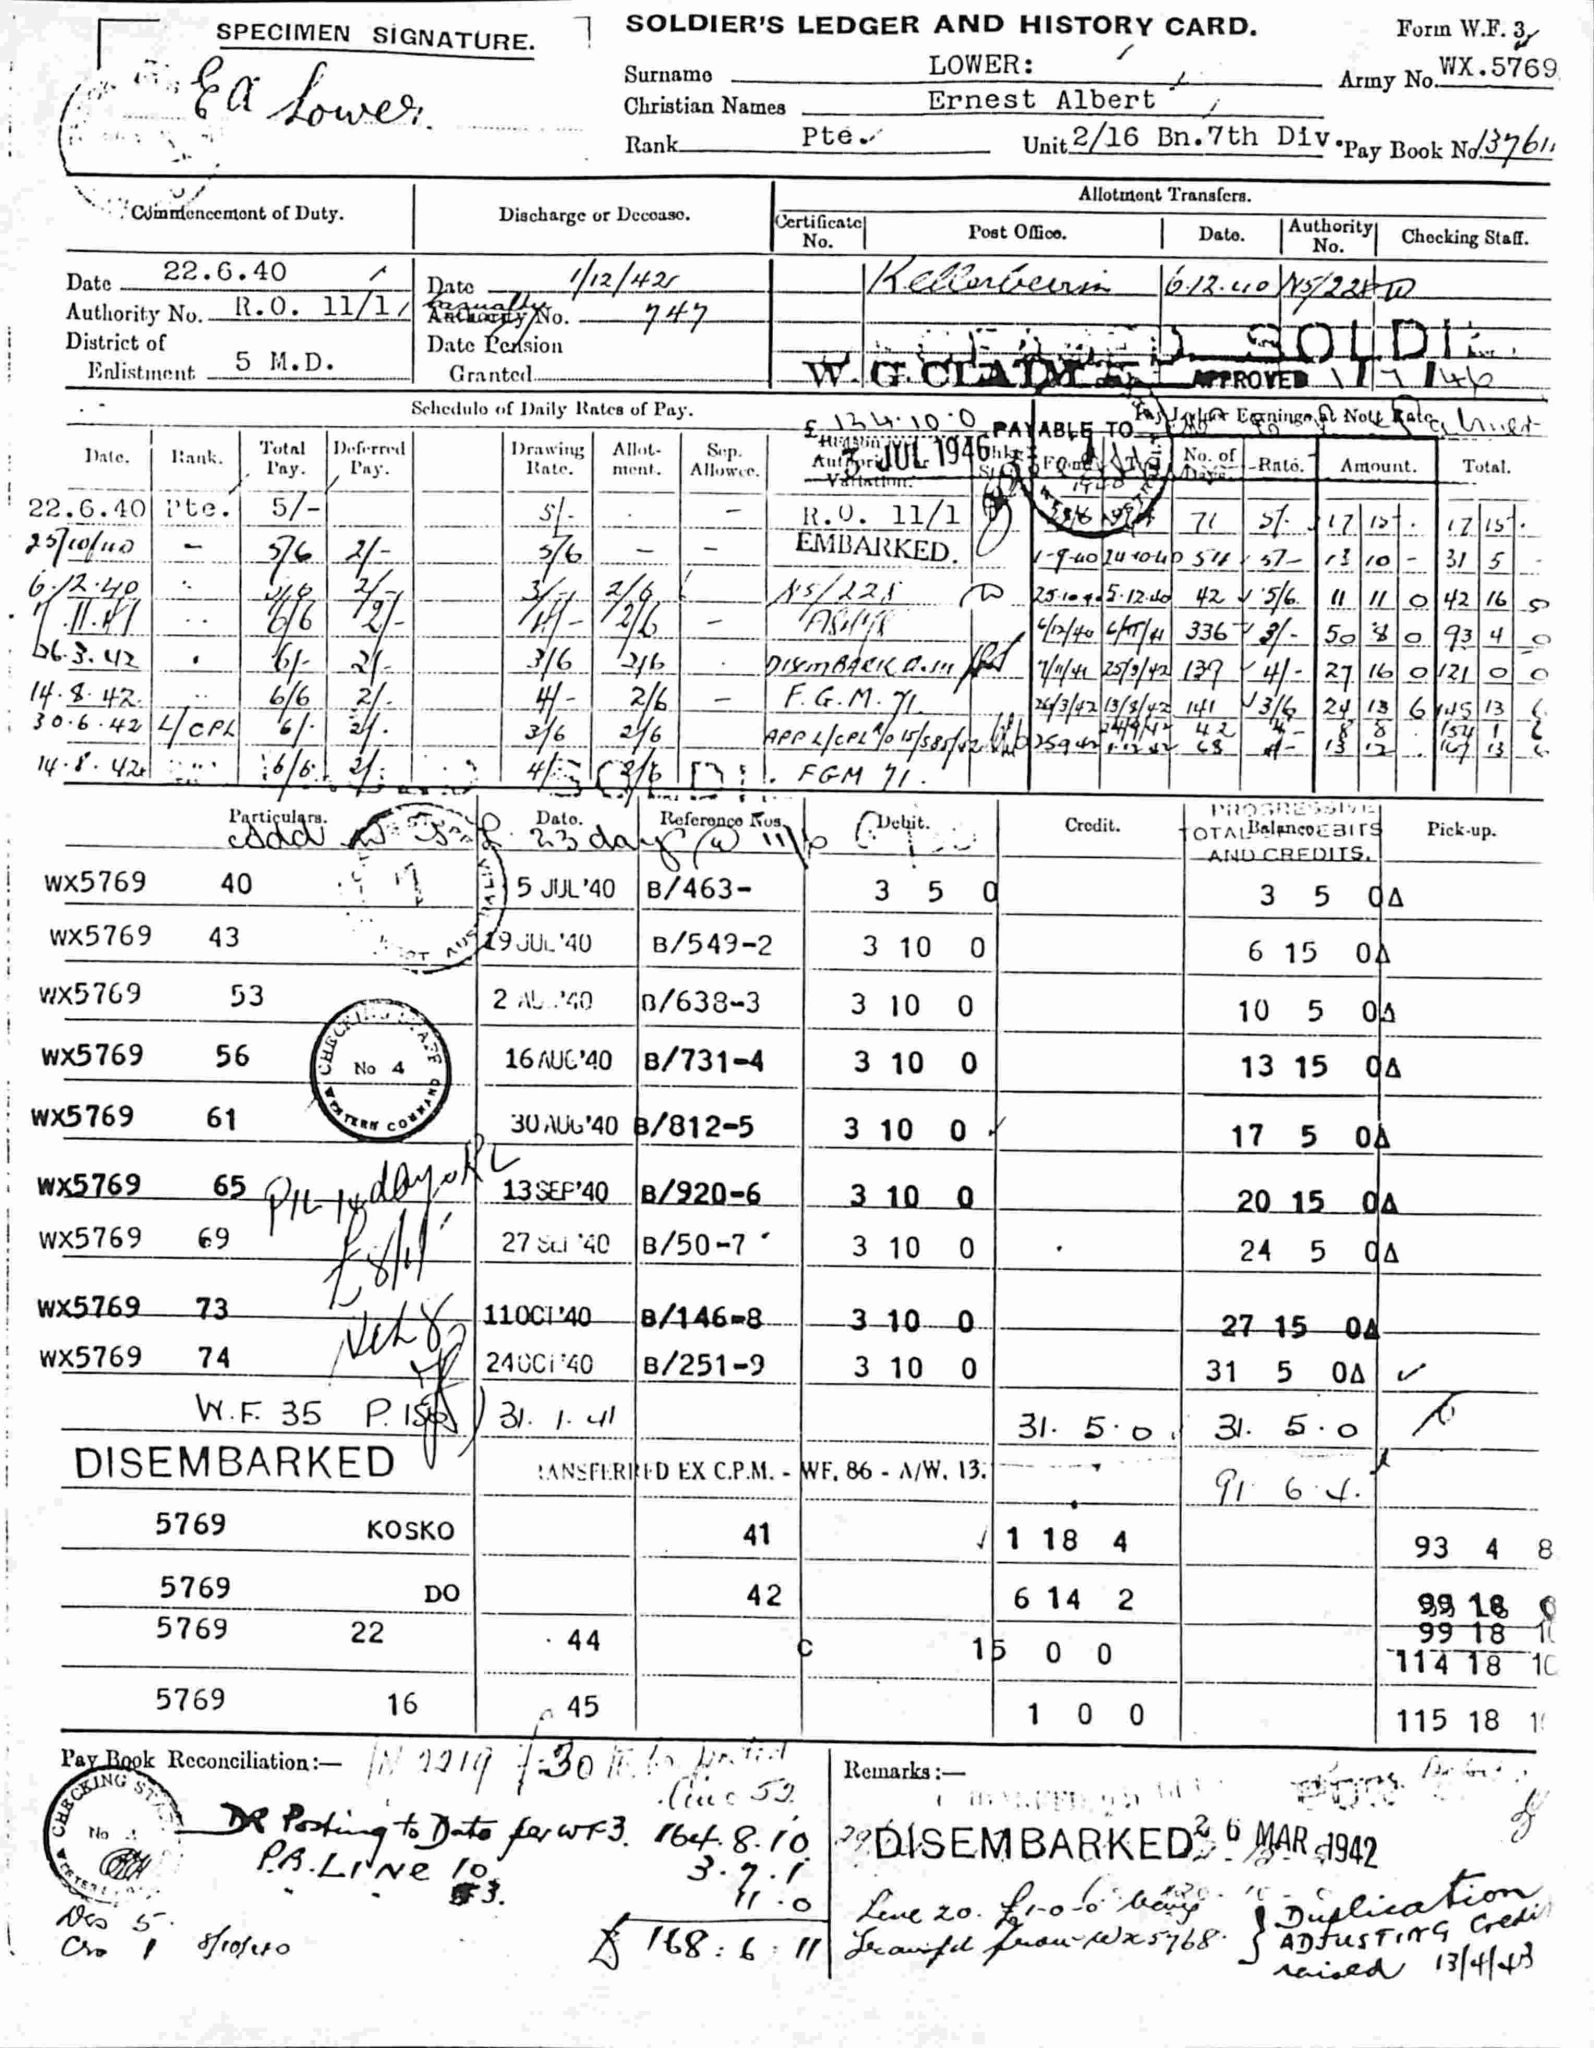 SPECIMEN SIGNATURE.
EA Lower.
SOLDIER'S LEDGER AND HISTORY CARD.
Form W.F. 3
Surname LOWER:
Army No. WX.5769
Christian Names Ernest Albert
Rank Pte.
Unit 2/16 Bn.7th Div.
Pay Book No. 137611
Commencement of Duty.
Discharge or Decease.
Allotment Transfers.
Certificate No. Post Office. Date. Authority No. Checking Staff.
Date 22.6.40
Date 1/12/42
Kellerberrin 6.12.40 N5/228
Authority No. R.O. 11/1
Casualty Authority No. 747
District of Enlistment 5 M.D.
Date Pension Granted
SOLDI
W.G. CLAIM APPROVED 1/7/46
Schedule of Daily Rates of Pay.
£ 134.10.0 PAYABLE TO
Earnings at Nett Rate
3 JUL 1946
Date. Rank. Total Pay. Deferred Pay. Drawing Rate. Allotment. Sep. Allowce. Variation. No. of Days. Rate. Amount. Total.
22.6.40 Pte. 5/- 5/- - R.O. 11/1 71 5/- 17 15 . 17 15 .
25/10/40 - 5/6 2/- 5/6 - - EMBARKED. 1-9-40 24.10.40 54 5/- 13 10 - 31 5 -
6.12.40 2/- 3/- 2/6 N5/228 25.10.40 5.12.40 42 5/6 11 11 0 42 16 0
7.11.41 6/6 2/- 4/- 2/6 - 6/12/40 6/11/41 336 3/- 50 8 0 93 4 0
26.3.42 6/- 2/- 3/6 2/6 DISEMBARK 7/11/41 25/3/42 139 4/- 27 16 0 121 0 0
14.8.42 6/6 2/- 4/- 2/6 - F.G.M. 71. 26/3/42 13/8/42 141 3/6 24 13 6 145 13 6
30.6.42 L/CPL 6/- 2/- 3/6 2/6 APP L/CPL 42 4/- 8 8 . 154 1 6
14.8.42 6/6 2/- 4/- 2/6 FGM 71. 68 4/- 13 12 . 167 13 6
Particulars. Date. Reference Nos. Debit. Credit. Balance Pick-up.
PROGRESSIVE TOTAL DEBITS AND CREDITS.
Add 23 days @ 11/6
WX5769 40 5 JUL'40 B/463- 3 5 0 3 5 0Δ
WX5769 43 19 JUL'40 B/549-2 3 10 0 6 15 0Δ
WX5769 53 2 AUG'40 B/638-3 3 10 0 10 5 0Δ
WX5769 56 16 AUG'40 B/731-4 3 10 0 13 15 0Δ
CHECKING STAFF No 4 WESTERN COMMAND
WX5769 61 30 AUG'40 B/812-5 3 10 0 17 5 0Δ
WX5769 65 13 SEP'40 B/920-6 3 10 0 20 15 0Δ
WX5769 69 27 SEP'40 B/50-7 3 10 0 24 5 0Δ
WX5769 73 11 OCT'40 B/146-8 3 10 0 27 15 0Δ
WX5769 74 24 OCT'40 B/251-9 3 10 0 31 5 0Δ
W.F. 35 31.1.41 31.5.0 31.5.0
DISEMBARKED TRANSFERRED EX C.P.M. - WF. 86 - A/W. 13. 91.6.4.
5769 KOSKO 41 1 18 4 93 4 8
5769 DO 42 6 14 2 99 18
5769 22 44 C 15 0 0 99 18 10
114 18 10
5769 16 45 1 0 0 115 18
Pay Book Reconciliation:—
CHECKING STAFF
DR Posting to Date per WF3. 164.8.10
P.B. LINE 10. 3.7.1
3. 11.0
£ 168:6:11
Drs 5.
Crs 1 8/10/40
Remarks:—
DISEMBARKED 26 MAR 1942
Line 20. £1-0-0
Transfd from WX5768.
Duplication
ADJUSTING Credit
raised 13/4/43